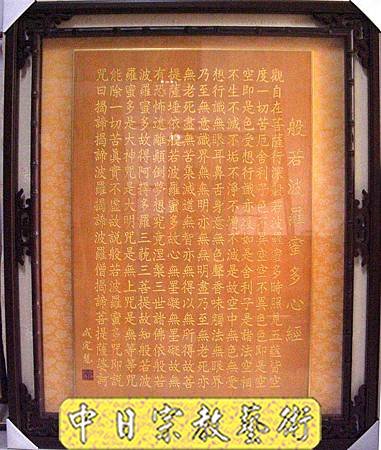 般若波羅蜜多心經
觀自在菩薩行深般若波羅蜜多時照見五蘊皆空
度一切苦厄舍利子色不異空空不異色色即是空
空即是色受想行識亦復如是舍利子是諸法空相
不生不滅不垢不淨不增不減是故空中無色無受
想行識無眼耳鼻舌身意無色聲香味觸法無眼界
乃至無意識界無無明亦無無明盡乃至無老死亦
無老死盡無苦集滅道無智亦無得以無所得故菩
提薩埵依般若波羅蜜多故心無罣礙無罣礙故無
有恐怖遠離顛倒夢想究竟涅槃三世諸佛依般若
波羅蜜多故得阿耨多羅三藐三菩提故知般若波
羅蜜多是大神咒是大明咒是無上咒是無等等咒
能除一切苦真實不虛故說般若波羅蜜多咒即說
咒曰揭諦揭諦波羅揭諦波羅僧揭諦菩提薩婆訶
中日宗教藝術